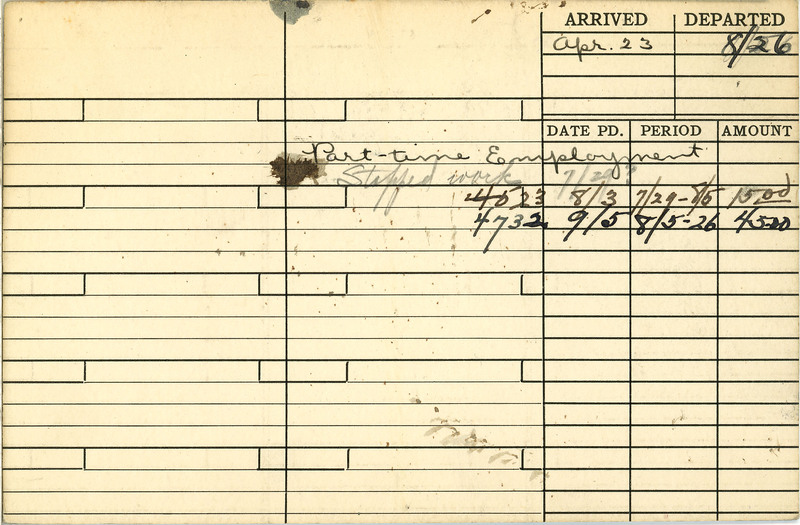 ARRIVED DEPARTED
Apr. 23 8/26
DATE PD. PERIOD AMOUNT
Part-time Employment
Stopped work 7/29?
4523 8/3 7/29-8/5 15.00
4732 9/5 8/5-26 45.00